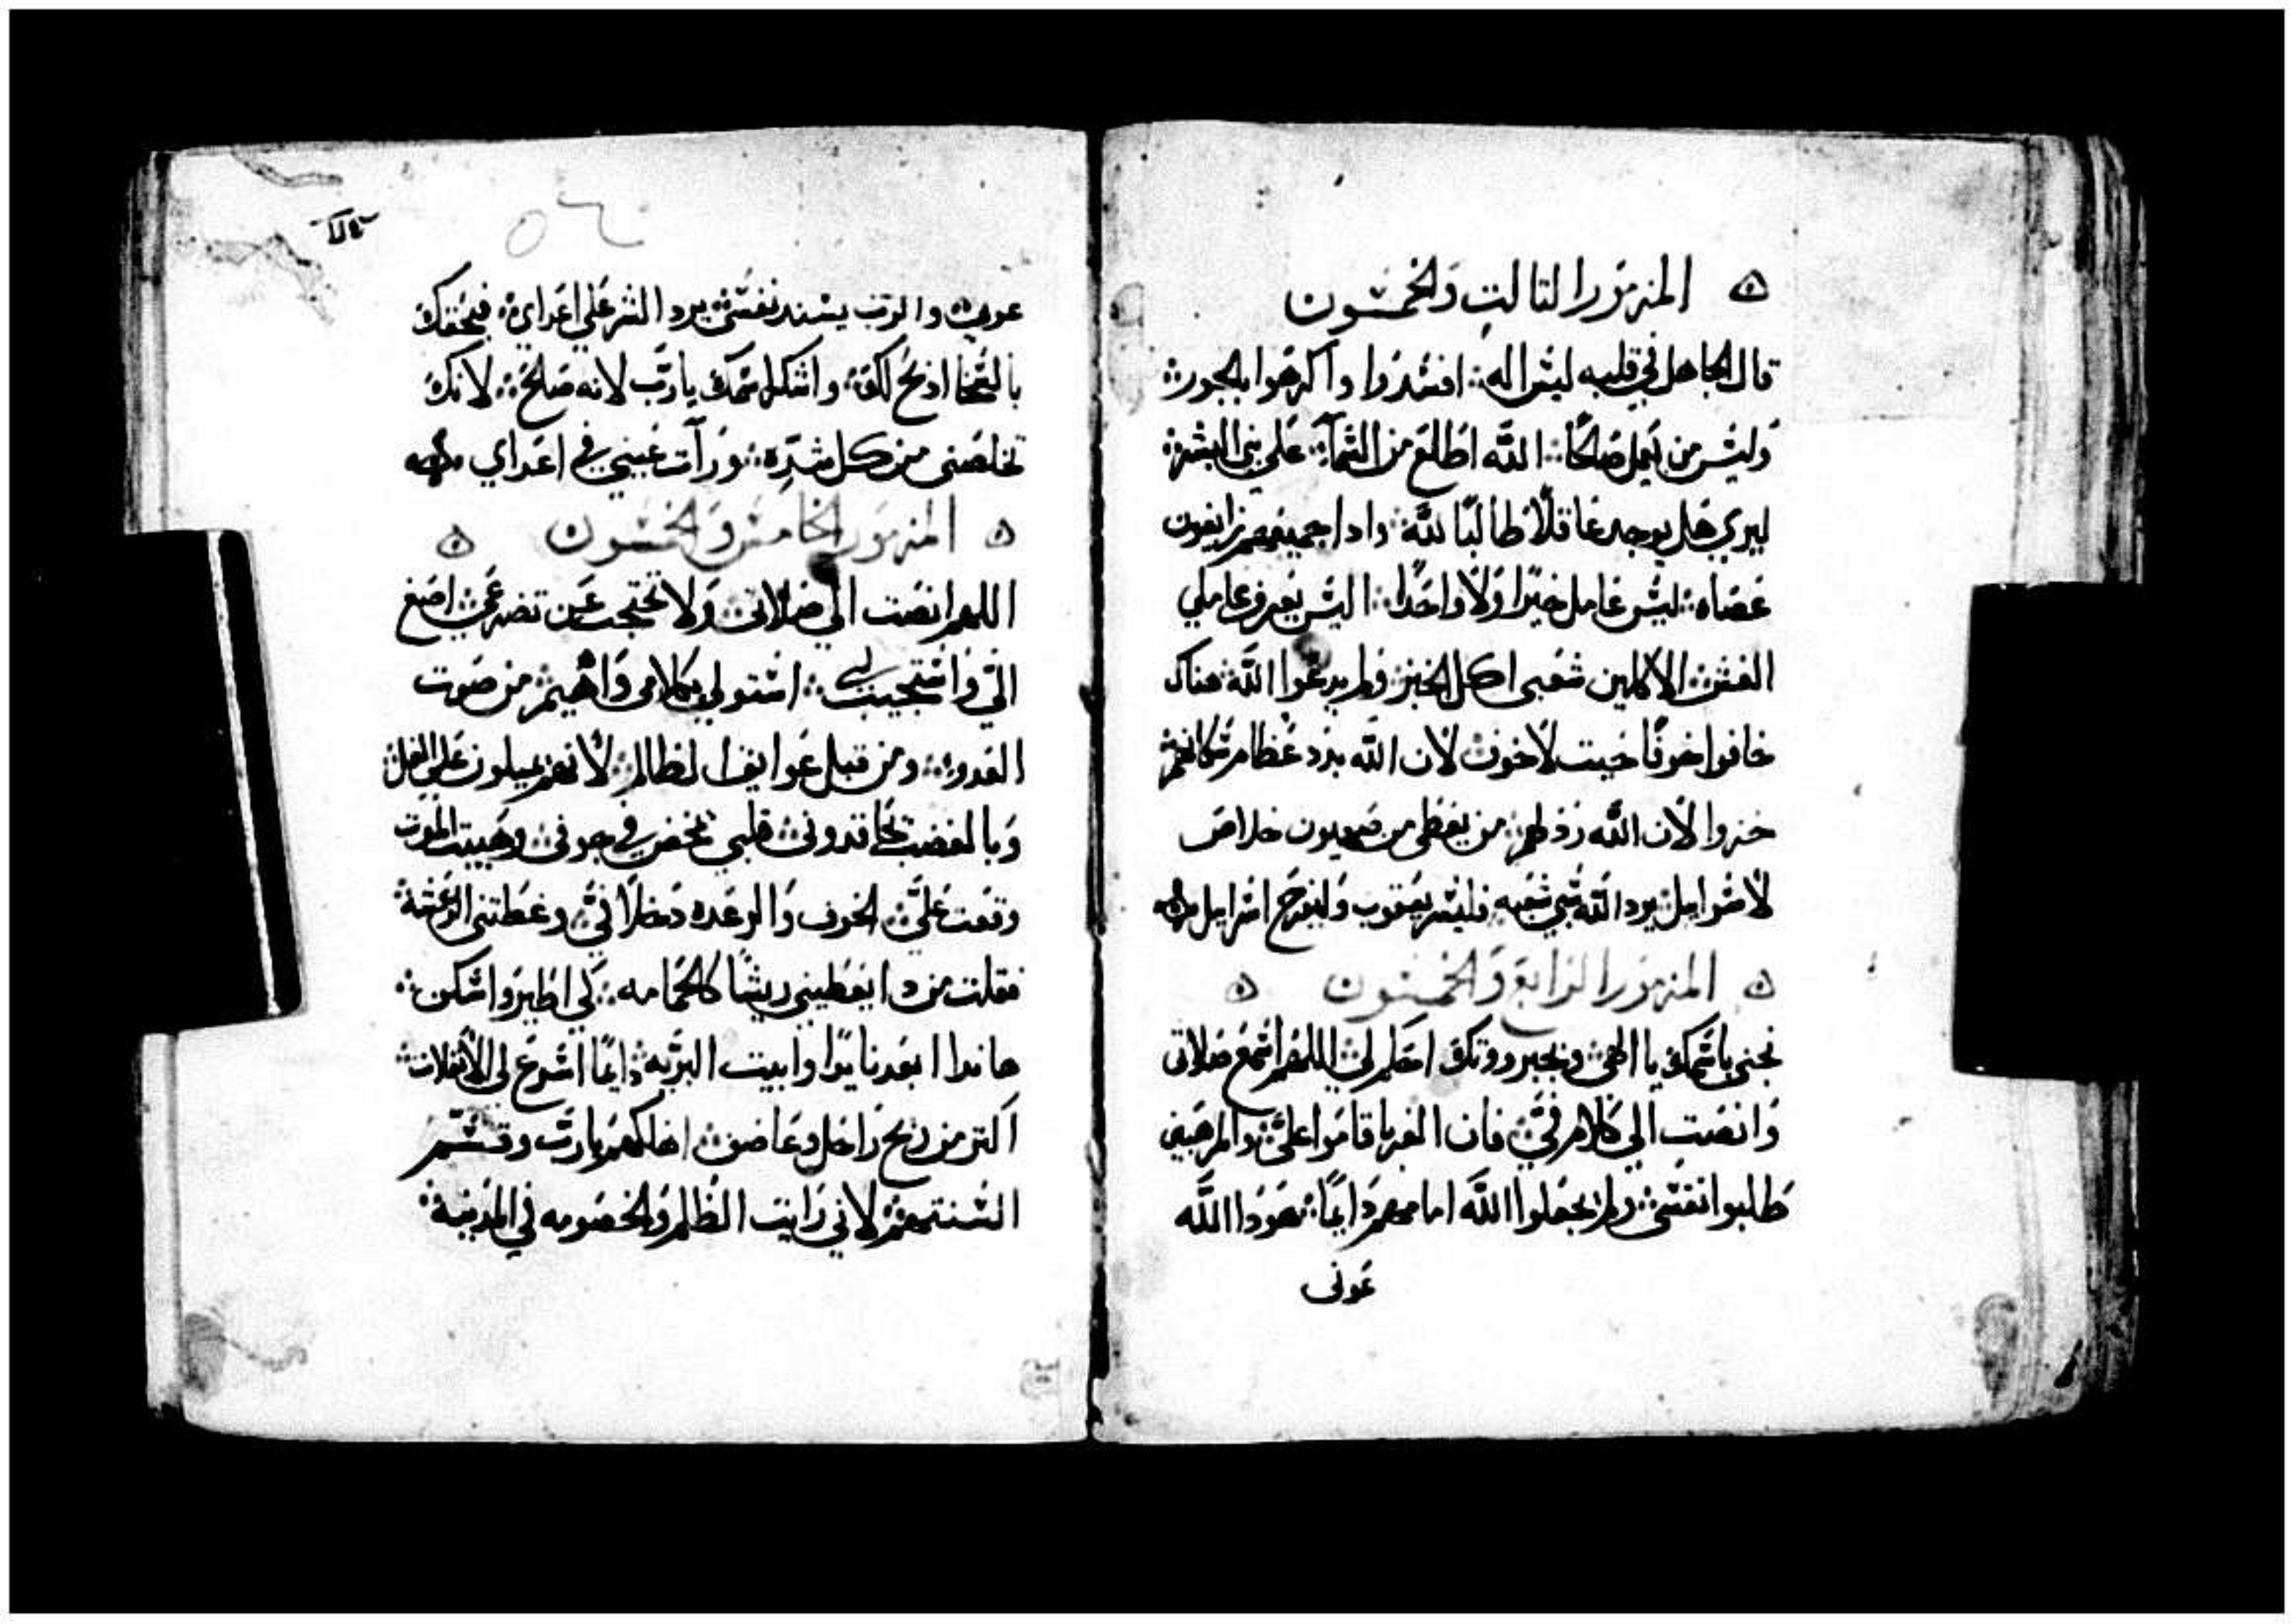 المزمور التالت والخمسون
قال الجاهل في قلبه ليس اله افسدوا واكرهوا بالجور
وليس من يعمل صالحًا الله اطالع من السمآ على بني البشر
ليري هل يوجد عاقلًا طالبًا لله وادا جميعهم زايغون
عصاه ليس عامل خيرًا ولا واحدًا اليس يعرف عاملي
الغش الاكلين شعبي اكل الخبز ولم يدعوا الله هناك
خافوا خوفًا حيت لا خوف لان الله بدد عظام سكانهم
خزوا لان الله رذلهم من يعطى من صهيون خلاص
لاسرايل يرد الله سبي شعبه فليسر يعقوب وليفرح اسرايل
المزمور الرابع والخمسون
نجني باسمك يا الهي وبجبروتك احكم لي اللهم اسمع صلاتى
وانصت الي كلام في فان الغربا قاموا علي والمرهبين
طلبوا نفسي ولم يجعلوا الله امامهم دايمًا هودا الله
عونى
عوني والرب يسند نفسي يرد الشر على اعداي فبحقك
بالسخا ادبح لك واشكر اسمك يا رب لانه صالح لانك
تخلصنى من كل شده ورآت عيني في اعداي
المزمور الخامس والخمسون
اللهم انصت الي صلاتى ولا تحتجب عن تضرعي اصغ
الي واستجيب لي استولي بكلامى واهيم من صوت
العدو ومن قبل عوايق الظالم لانهم يميلون علي الغل
وبالغضب يحاقدونى قلبي تمخض في جوفى وهيبت الموت
وقعت علي الخوف والرعده دخلا في وغطتني الوعثة
فقلت من دا يعطيني ريشًا كالحمامه لي اطير واسكن
هاندا ابعد نايدًا وابيت البريه دايمًا اسرع لي الانفلات
اكتر من ريح راحل وعاصف اهلكهم يا رب وقسم
السنتهم لاني رايت الظلم والخصومه في المدينة